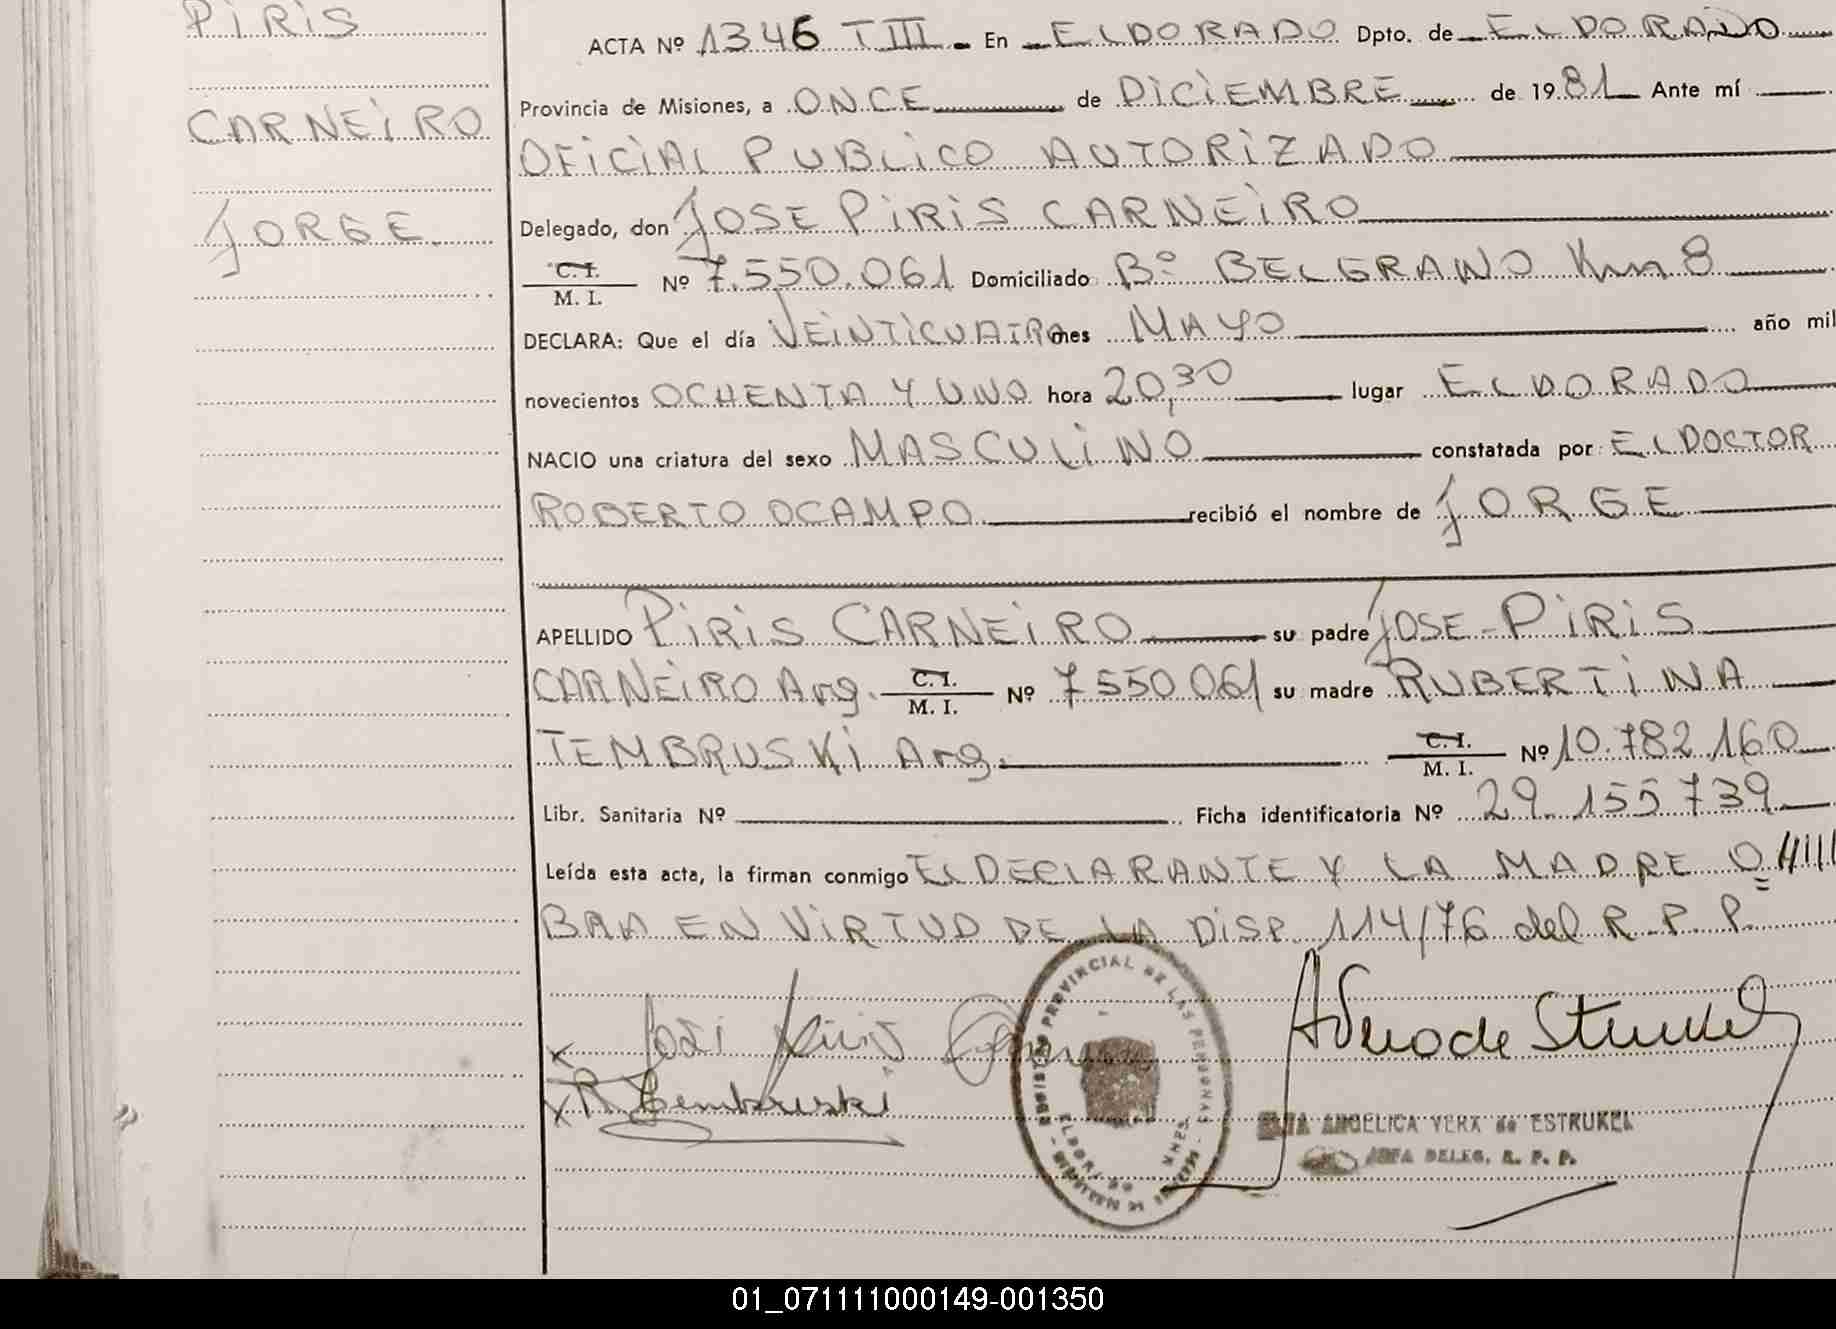 PIRIS
CARNEIRO
JORGE.
ACTA Nº 1346 TIII En ELDORADO Dpto. de ELDORADO
Provincia de Misiones, a ONCE de DICIEMBRE de 1981 Ante mí
OFICIAL PUBLICO AUTORIZADO
Delegado, don JOSE PIRIS CARNEIRO
C. I. / M. I. Nº 7.550.061 Domiciliado Bº BELGRANO Km 8
DECLARA: Que el día VEINTICUATRO mes MAYO año mil
novecientos OCHENTA Y UNO hora 20,30 lugar ELDORADO
NACIO una criatura del sexo MASCULINO constatada por EL DOCTOR
ROBERTO OCAMPO recibió el nombre de JORGE
APELLIDO PIRIS CARNEIRO su padre JOSE PIRIS
CARNEIRO Arg. C. I. / M. I. Nº 7550061 su madre RUBERTINA
TEMBRUSKI Arg. C. I. / M. I. Nº 10.782.160
Libr. Sanitaria Nº Ficha identificatoria Nº 29.155.739
Leída esta acta, la firman conmigo EL DECLARANTE Y LA MADRE
EN VIRTUD DE LA DISP. 114/76 del R.P.P.
José Piris
R Tembruski
REGISTRO PROVINCIAL DE LAS PERSONAS
ELDORADO MNES.
ANGELICA VERA de ESTRUKEL
JEFA DELEG. R. P. P.
01_071111000149-001350